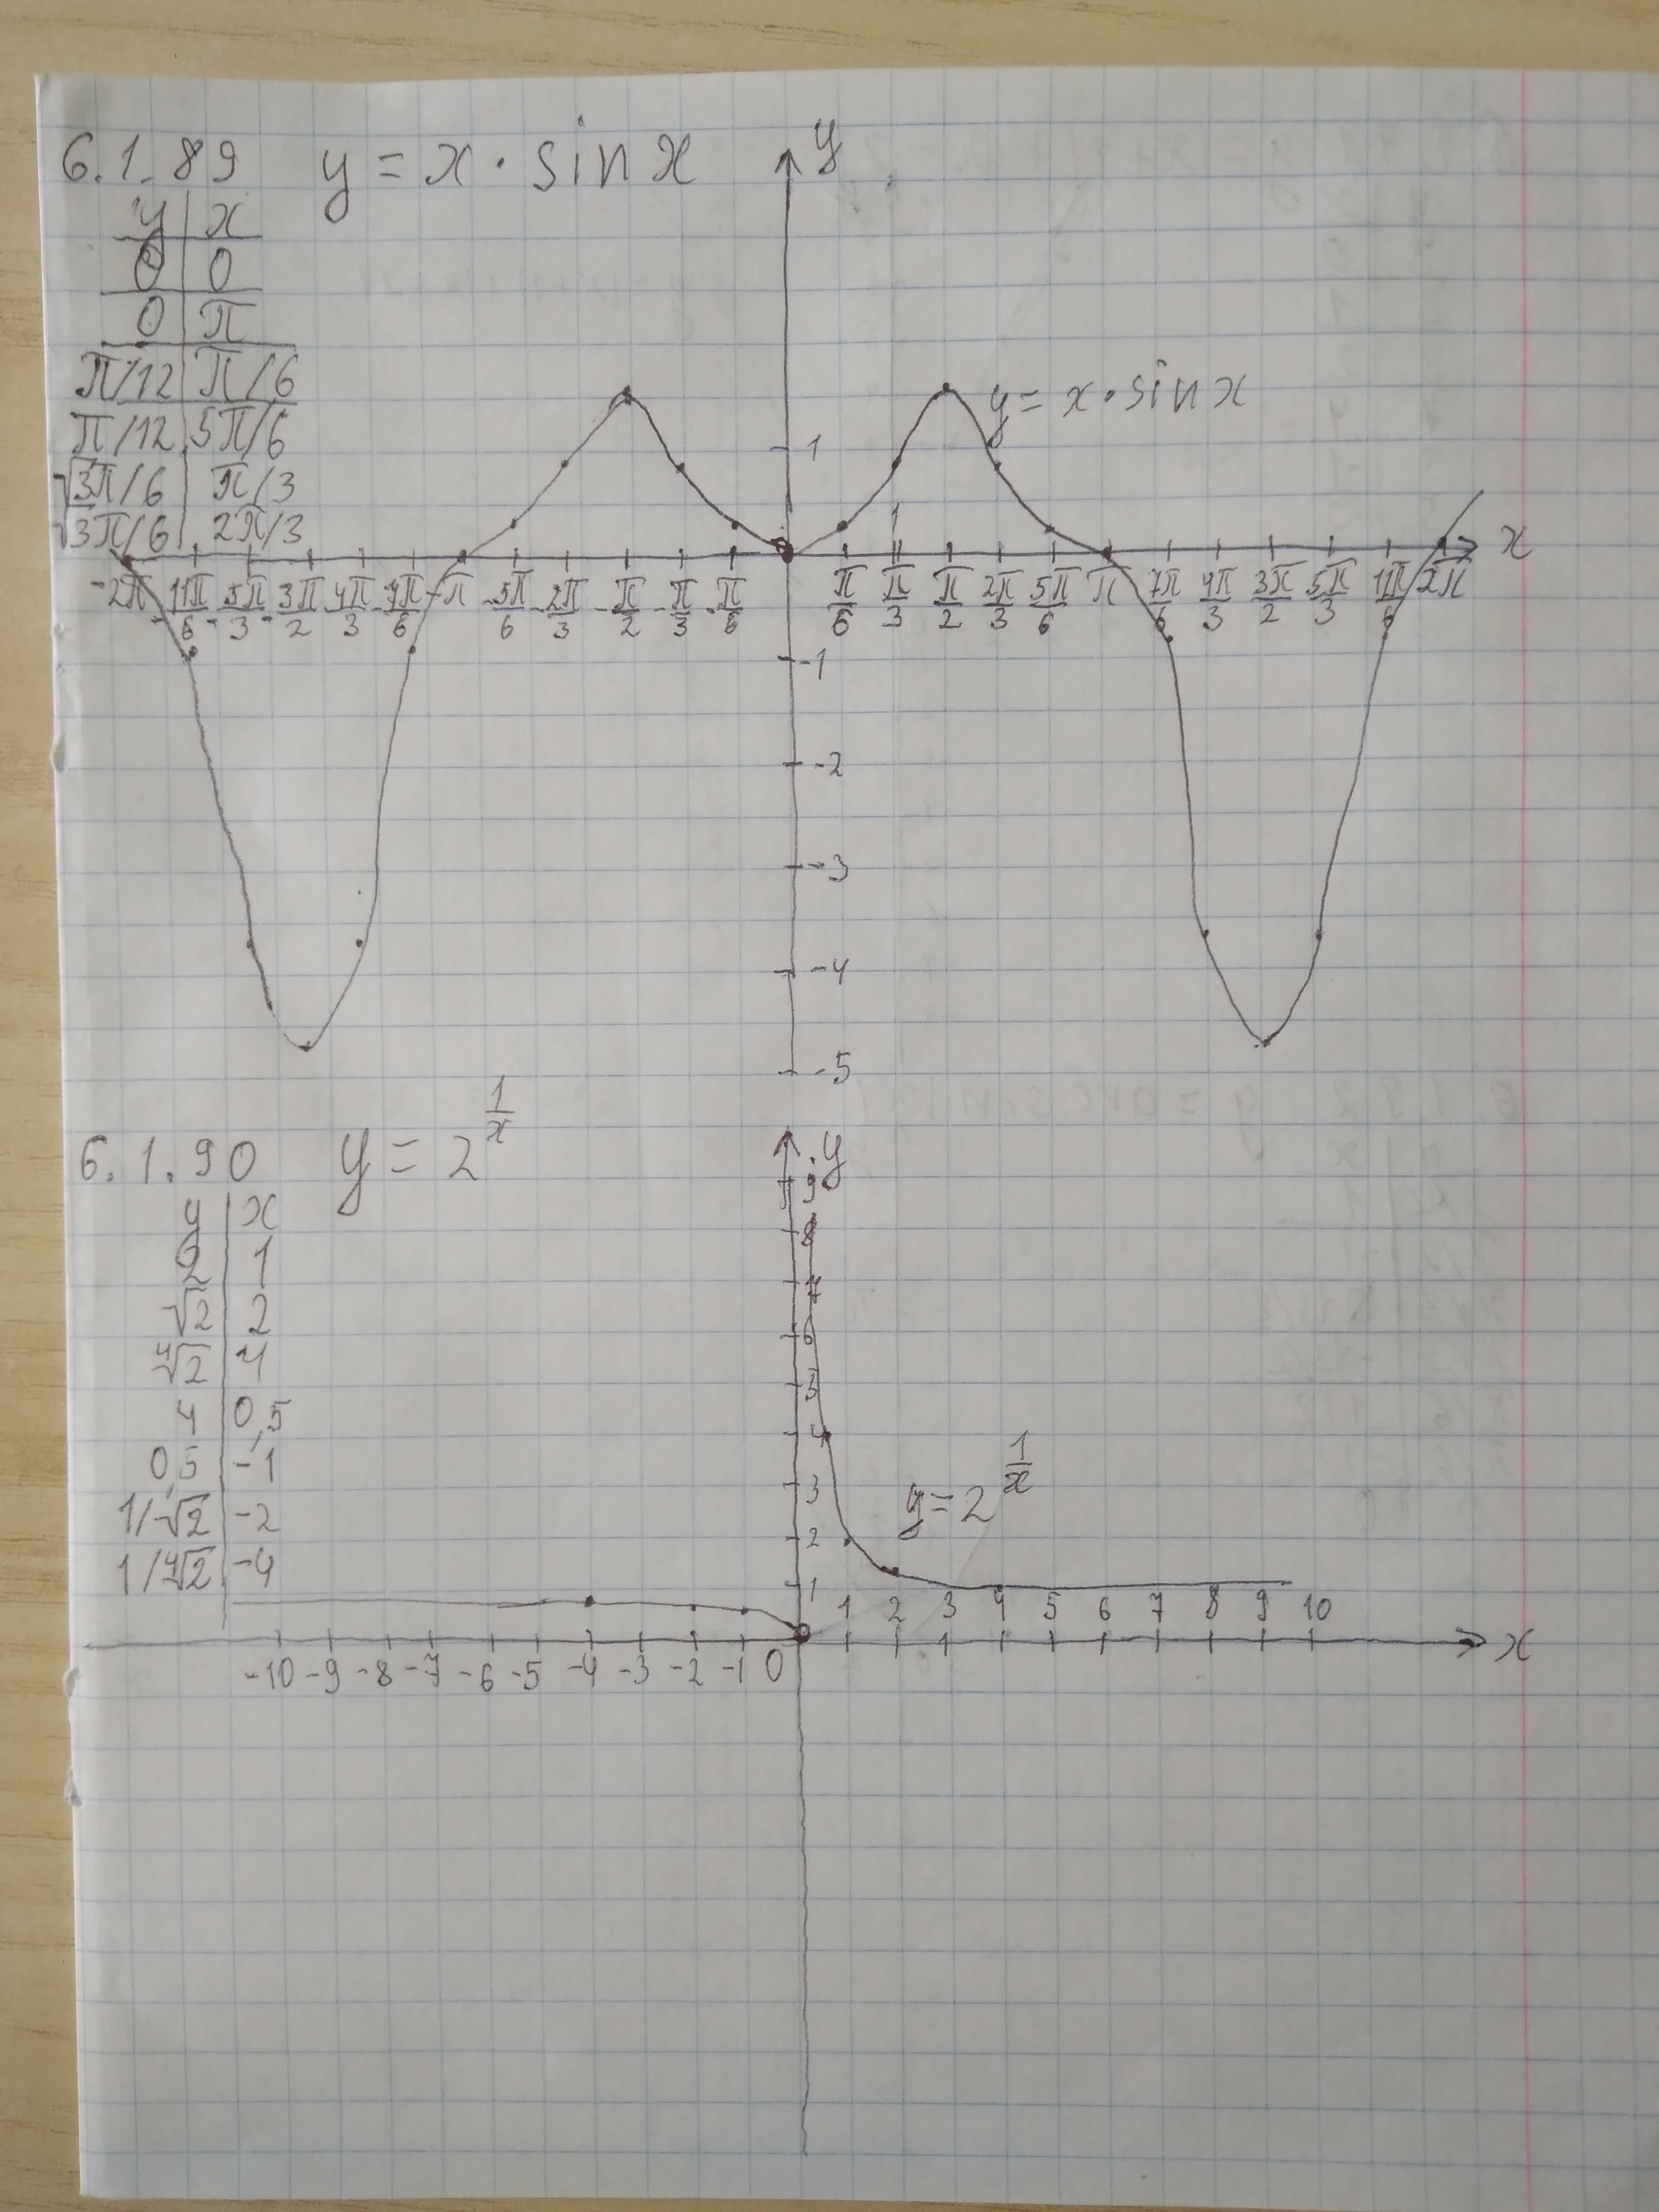 6.1.89 y = x · sin x
y
y | x
0 | 0
0 | π
π/12 | π/6
π/12 | 5π/6
√3π/6 | π/3
√3π/6 | 2π/3
y = x · sin x
1
1
x
-2π -11π/6 -5π/3 -3π/2 -4π/3 -7π/6 -π -5π/6 -2π/3 -π/2 -π/3 -π/6 π/6 π/3 π/2 2π/3 5π/6 π 7π/6 4π/3 3π/2 5π/3 11π/6 2π
-1
-2
-3
-4
-5
6.1.90 y = 2^(1/x)
y
y | x
2 | 1
√2 | 2
∜2 | 4
4 | 0,5
0,5 | -1
1/√2 | -2
1/∜2 | -4
9
8
7
6
5
4
3
2
1
y = 2^(1/x)
1 2 3 4 5 6 7 8 9 10
x
-10 -9 -8 -7 -6 -5 -4 -3 -2 -1 0